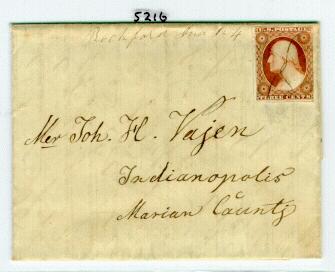 5216
Rockford
U.S. POSTAGE
THREE CENTS
Mr Joh. H. Vajen
Indianopolis
Marian County